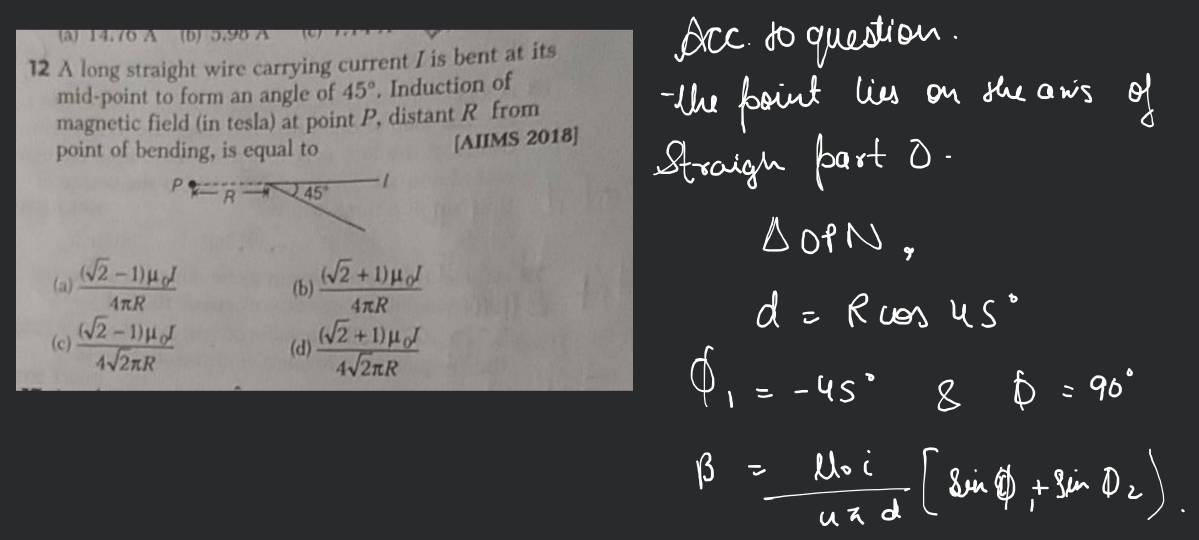 (a) 14.76 A (b) 5.98 A (c)
12 A long straight wire carrying current I is bent at its
mid-point to form an angle of 45°. Induction of
magnetic field (in tesla) at point P, distant R from
point of bending, is equal to [AIIMS 2018]
P R 45° I
(a) (√2 – 1)μ₀I / 4πR (b) (√2 + 1)μ₀I / 4πR
(c) (√2 – 1)μ₀I / 4√2πR (d) (√2 + 1)μ₀I / 4√2πR
Acc. to question.
-the point lies on the axis of
Straigh part O.
Δ OPN,
d = R cos 45°
ϕ₁ = -45° & ϕ = 90°
B = μ₀ i / 4π d [sin ϕ₁ + sin ϕ₂).